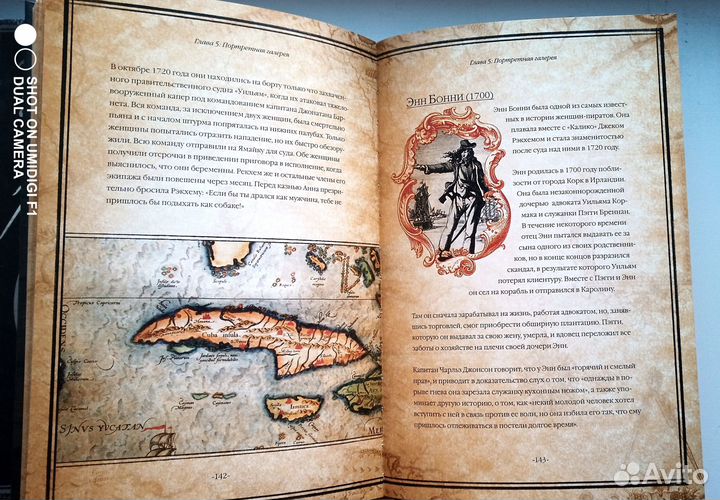 SHOT ON UMIDIGI F1
DUAL CAMERA
Глава 5: Портретная галерея
В октябре 1720 года они находились на борту только что захвачен-
ного правительственного судна «Уильям», когда их атаковал тяжело-
вооруженный капер под командованием капитана Джонатана Бар-
нета. Вся команда, за исключением двух женщин, была смертельно
пьяна и с началом штурма попряталась на нижних палубах. Только
женщины попытались отразить нападение, но их быстро обезору-
жили. Всю команду отправили на Ямайку для суда. Обе женщины
получили отсрочки в приведении приговора в исполнение, когда
выяснилось, что они беременны. Рекхем же и остальные члены его
экипажа были повешены через месяц. Перед казнью Анна презри-
тельно бросила Рэкхему: «Если бы ты дрался как мужчина, тебе не
пришлось бы подыхать как собаке!»
Tropicus Capricorni
Cuba insula
Iamaica
SINVS YUCATAN
ME
-142-
Глава 5: Портретная галерея
Энн Бонни (1700)
Энн Бонни была одной из самых извест-
ных в истории женщин-пиратов. Она
плавала вместе с «Калико» Джеком
Рэкхемом и стала знаменитостью
после суда над ними в 1720 году.
Энн родилась в 1700 году побли-
зости от города Корк в Ирландии.
Она была незаконнорожденной
дочерью адвоката Уильяма Кор-
мака и служанки Пэгги Бреннан.
В течение некоторого времени
отец Энн пытался выдавать ее за
сына одного из своих родственни-
ков, но в конце концов разразился
скандал, в результате которого Уильям
потерял клиентуру. Вместе с Пэгги и Энн
он сел на корабль и отправился в Каролину.
Там он сначала зарабатывал на жизнь, работая адвокатом, но, заняв-
шись торговлей, смог приобрести обширную плантацию. Пэгги,
которую он выдавал за свою жену, умерла, и вдовец переложил все
заботы о хозяйстве на плечи своей дочери Энн.
Капитан Чарльз Джонсон говорит, что у Энн был «горячий и смелый
нрав», и приводит в доказательство слух о том, что «однажды в по-
рыве гнева она зарезала служанку кухонным ножом», а также упо-
минает другую историю, о том, как «некий молодой человек хотел
вступить с ней в связь против ее воли, но она избила его так, что ему
пришлось отлеживаться в постели долгое время».
-143-
Avito